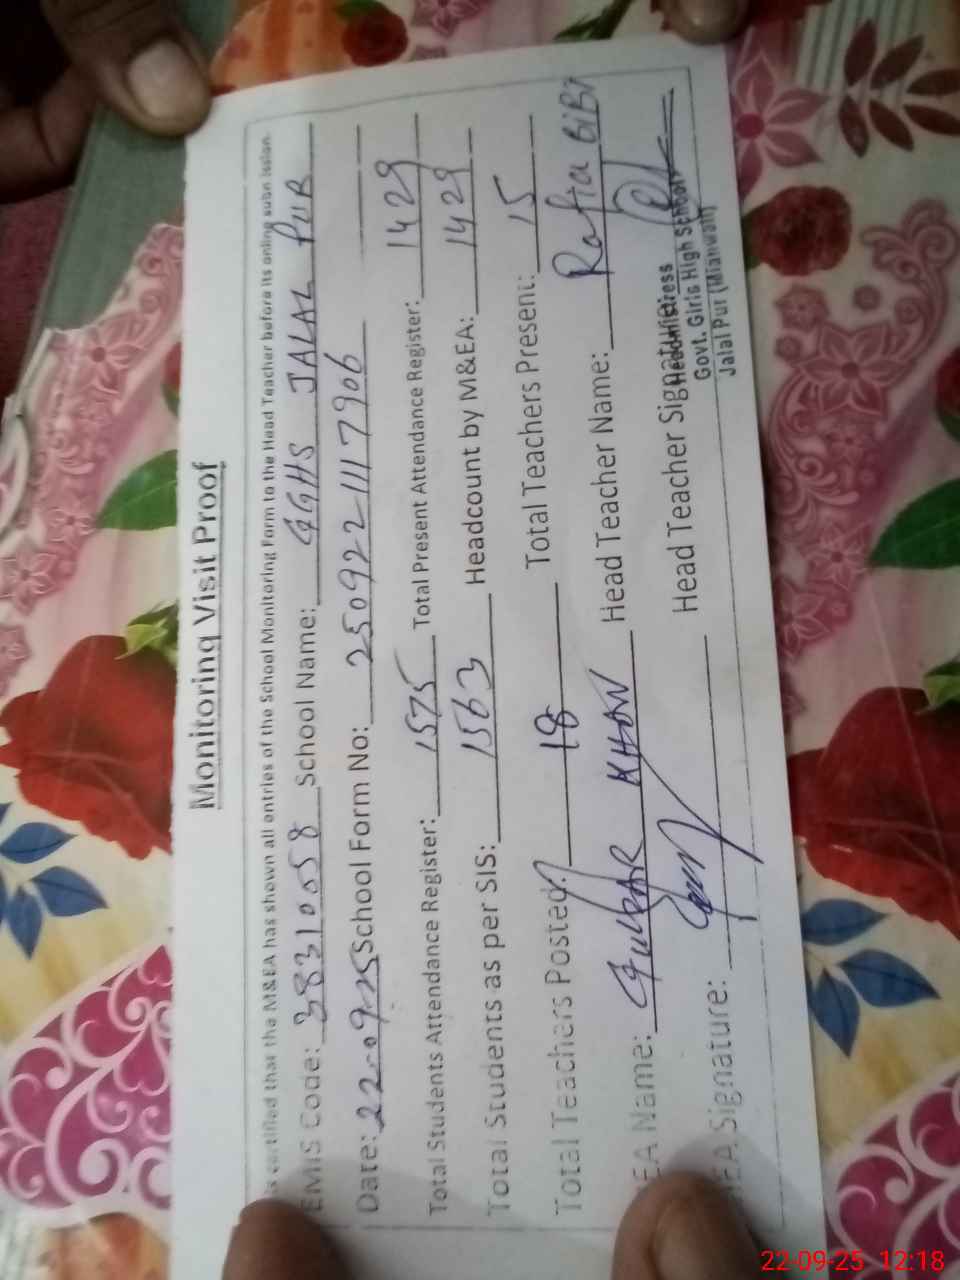 Monitoring Visit Proof
is certified that the M&EA has shown all entries of the School Monitoring Form to the Head Teacher before its online submission.
EMIS Code: 38310058 School Name: GGHS JALAL PUR
Date: 22-09-25 School Form No: 2509221117906
Total Students Attendance Register: 1575 Total Present Attendance Register: 1429
Total Students as per SIS: 1563 Headcount by M&EA: 1429
Total Teachers Posted: 18 Total Teachers Present: 15
EA Name: Gulbar KHAN Head Teacher Name: Rafia BiBi
EA Signature: Head Teacher Signature:
Headmistress
Govt. Girls High School
Jalal Pur (Mianwali)
22-09-25 12:18